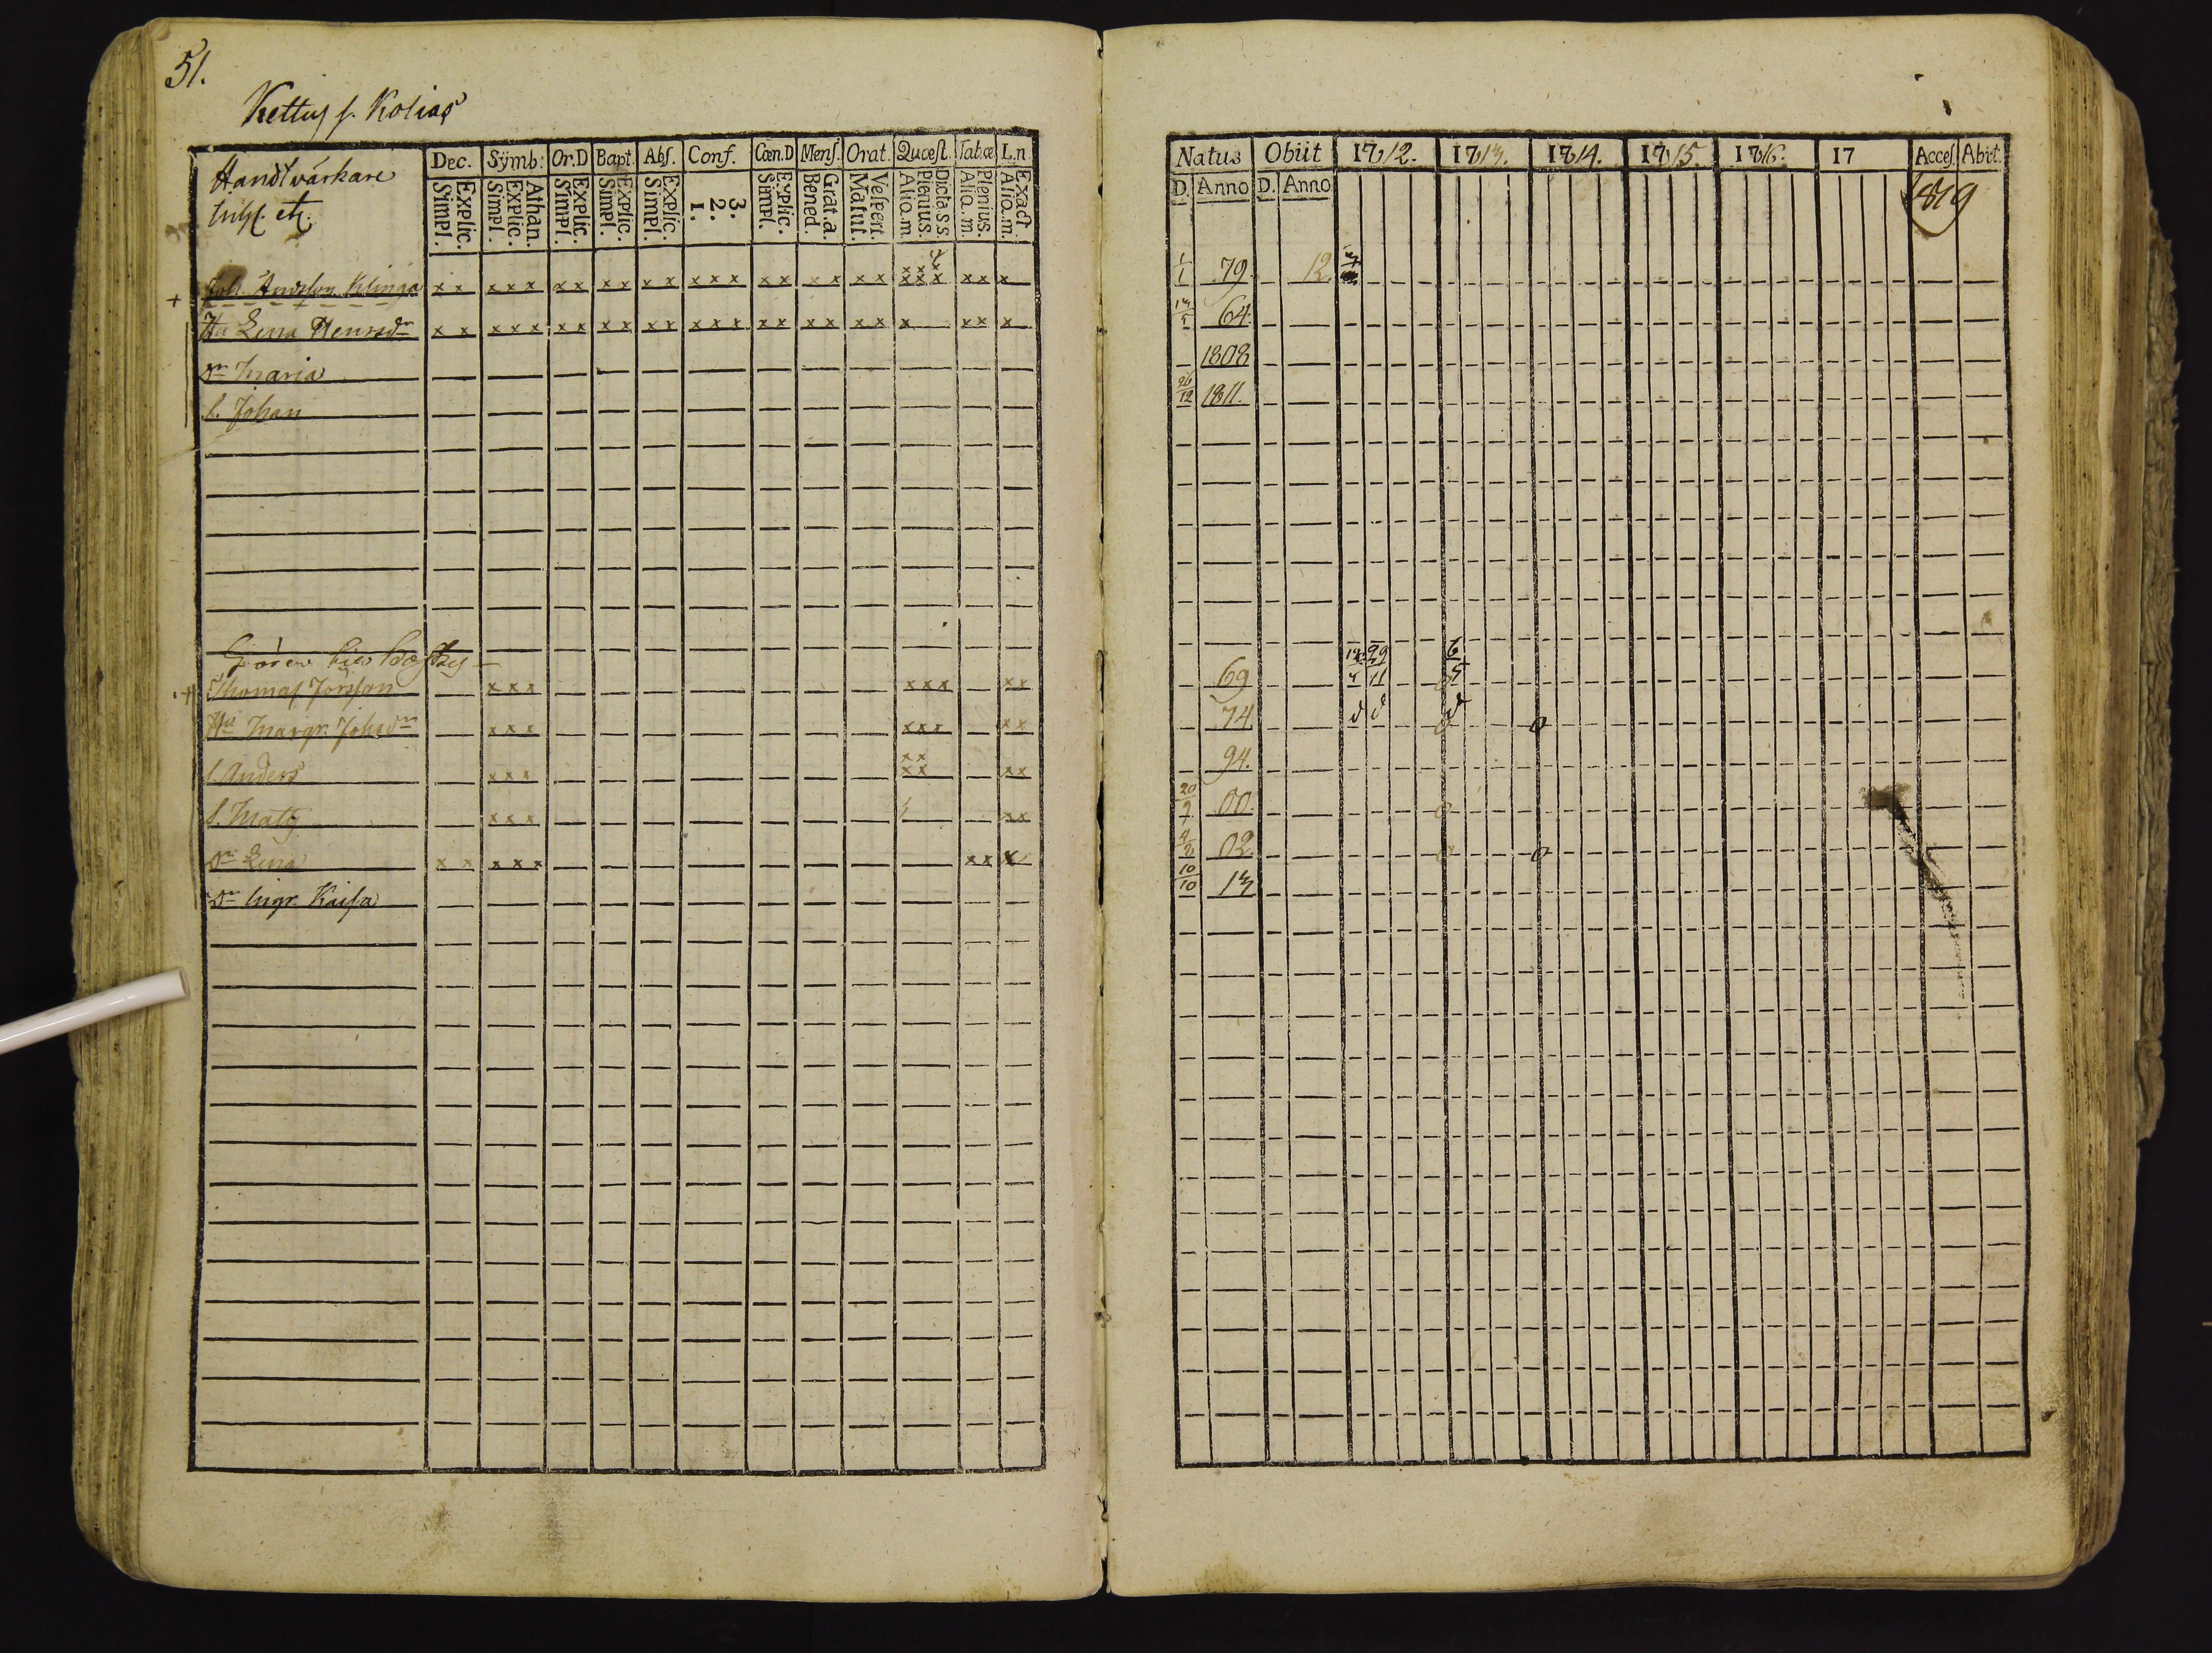 51.
Kettus s. Kolias
Handtvärkare
Dec. Symb: Or.D Bapt. Abs. Conf. Cœn.D Mens. Orat. Quæst. Tabæ L.n
Explic. Simpl. Athan. Explic. Simpl. Explic. Simpl. Explic. Simpl. Explic. Simpl. 3. 2. 1. Explic. Simpl. Grat.a. Bened. Vespert. Matut. Dicta s.s. Plenius. Aliq.m. Plenius. Aliq.m. Exact. Aliq.m.
Joh. Andersson Klinga x x x x x x x x x x x x x x x x x x x x x x x x x x x x x
Hu Lena Henrsdr x x x x x x x x x x x x x x x x x x x x x x x x
dr Maria
s. Johan
Thomas Jörsson x x x x x x x x
Hu Margr. Johsdr x x x x x x x x
s. Anders x x x x x x x x x
s. Mats x x x x x
dr Lena x x x x x x x x
dr Ingr. Kaisa
Natus Obiit 1812. 1813. 1814. 1815. 1816. 17 Acces. Abiit.
D. Anno D. Anno
1819
1/1 79. 12.
64.
1808
26/12 1811.
69
74
94.
20/9 00.
02
10/10 13